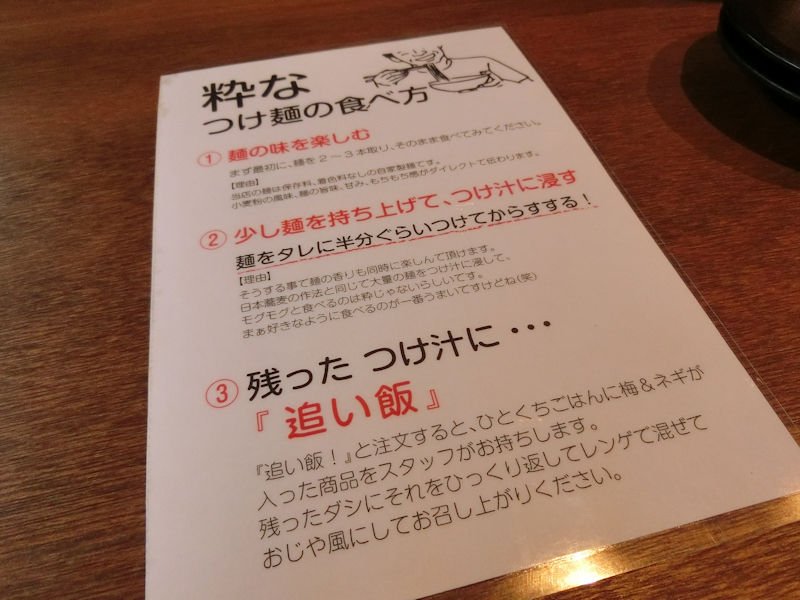 粋な
つけ麺の食べ方
① 麺の味を楽しむ
まず最初に、麺を2〜3本取り、そのまま食べてみてください。
【理由】
当店の麺は保存料、着色料なしの自家製麺です。
小麦粉の風味、麺の旨味、甘み、もちもち感がダイレクトで伝わります。
② 少し麺を持ち上げて、つけ汁に浸す
麺をタレに半分ぐらいつけてからすする！
【理由】
そうする事で麺の香りも同時に楽しんで頂けます。
日本蕎麦の作法と同じで大量の麺をつけ汁に浸して、
モグモグと食べるのは粋じゃないらしいです。
まぁ好きなように食べるのが一番うまいですけどね（笑）
③ 残った つけ汁に・・・
『 追い飯 』
『追い飯！』と注文すると、ひとくちごはんに梅＆ネギが
入った商品をスタッフがお持ちします。
残ったダシにそれをひっくり返してレンゲで混ぜて
おじや風にしてお召し上がりください。